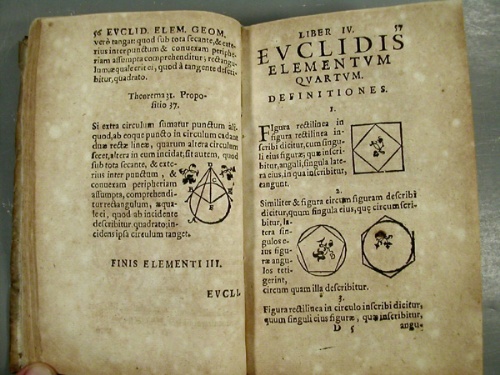 56 EVCLID. ELEM. GEOM.
verò tangat: quod sub tota secante, & exte
rius inter punctum & conuexam periphe
riam assumpta comprehenditur, rectangu-
lum æquale erit ei, quod à tangente descri
bitur, quadrato.
Theorema 31. Propo-
sitio 37.
Si extra circulum sumatur punctum
quod, ab eoque puncto in circulum cadant
duæ rectæ lineæ, quarum altera circulum
secet, altera in eum incidat, sit autem, quod
sub tota secante, & exte
rius inter punctum, &
conuexam peripheriam
assumpta, comprehendi
tur rectangulum, æqua-
le ei, quod ab incidente
describitur, quadrato, in
cidens ipsa circulum tanget.
FINIS ELEMENTI III.
EVCLI
LIBER IV. 57
EVCLIDIS
ELEMENTVM
QVARTVM.
DEFINITIONES.
1.
Figura rectilinea in
figura rectilinea in-
scribi dicitur, cum singu
li eius figuræ, quæ inscri
bitur, anguli, singula late
ra eius, in qua inscribitur,
tangunt.
2.
Similiter & figura circum figuram describi
dicitur, quum singula eius, quę circumscri-
bitur, la-
tera sin-
gulos e-
ius figu-
ræ angu-
los teti-
gerint,
circum quam illa describitur.
3.
Figura rectilinea in circulo inscribi dicitur,
quum singuli eius figuræ, quæ inscribitur,
D 5 angu-